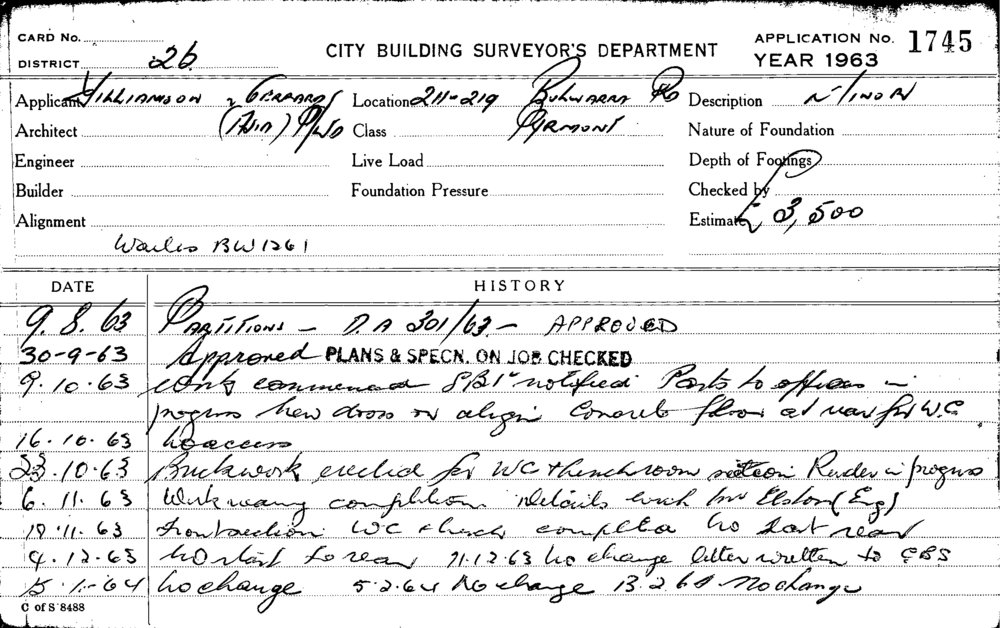 CARD No. CITY BUILDING SURVEYOR'S DEPARTMENT APPLICATION No. 1745
DISTRICT 26 YEAR 1963
Applicant Williamson Location 211-219 Bulwarra Rd Description
Architect (Asia) P/L Class Pyrmont Nature of Foundation
Engineer Live Load Depth of Footings
Builder Foundation Pressure Checked by
Alignment Estimate £3,500
BW1261
DATE HISTORY
9.8.63 Partitions - D.A 301/63 - APPROVED
30-9-63 Approved PLANS & SPECN. ON JOB CHECKED
9.10.63 Work commenced notified to offices in
progress New doors on align Concrete floor at rear for W.C
16.10.63 No access
23.10.63 Brickwork erected for WC & lunchroom Render in progress
6.11.63 Work nearing completion details with Mr Elston (Eng)
.11.63 Front section WC & lunch completed No start rear
4.12.63 No start to rear 11.12.63 No change letter written to CBS
.1.64 No change 5.2.64 No change 13.2.64 No change
C of S 8488